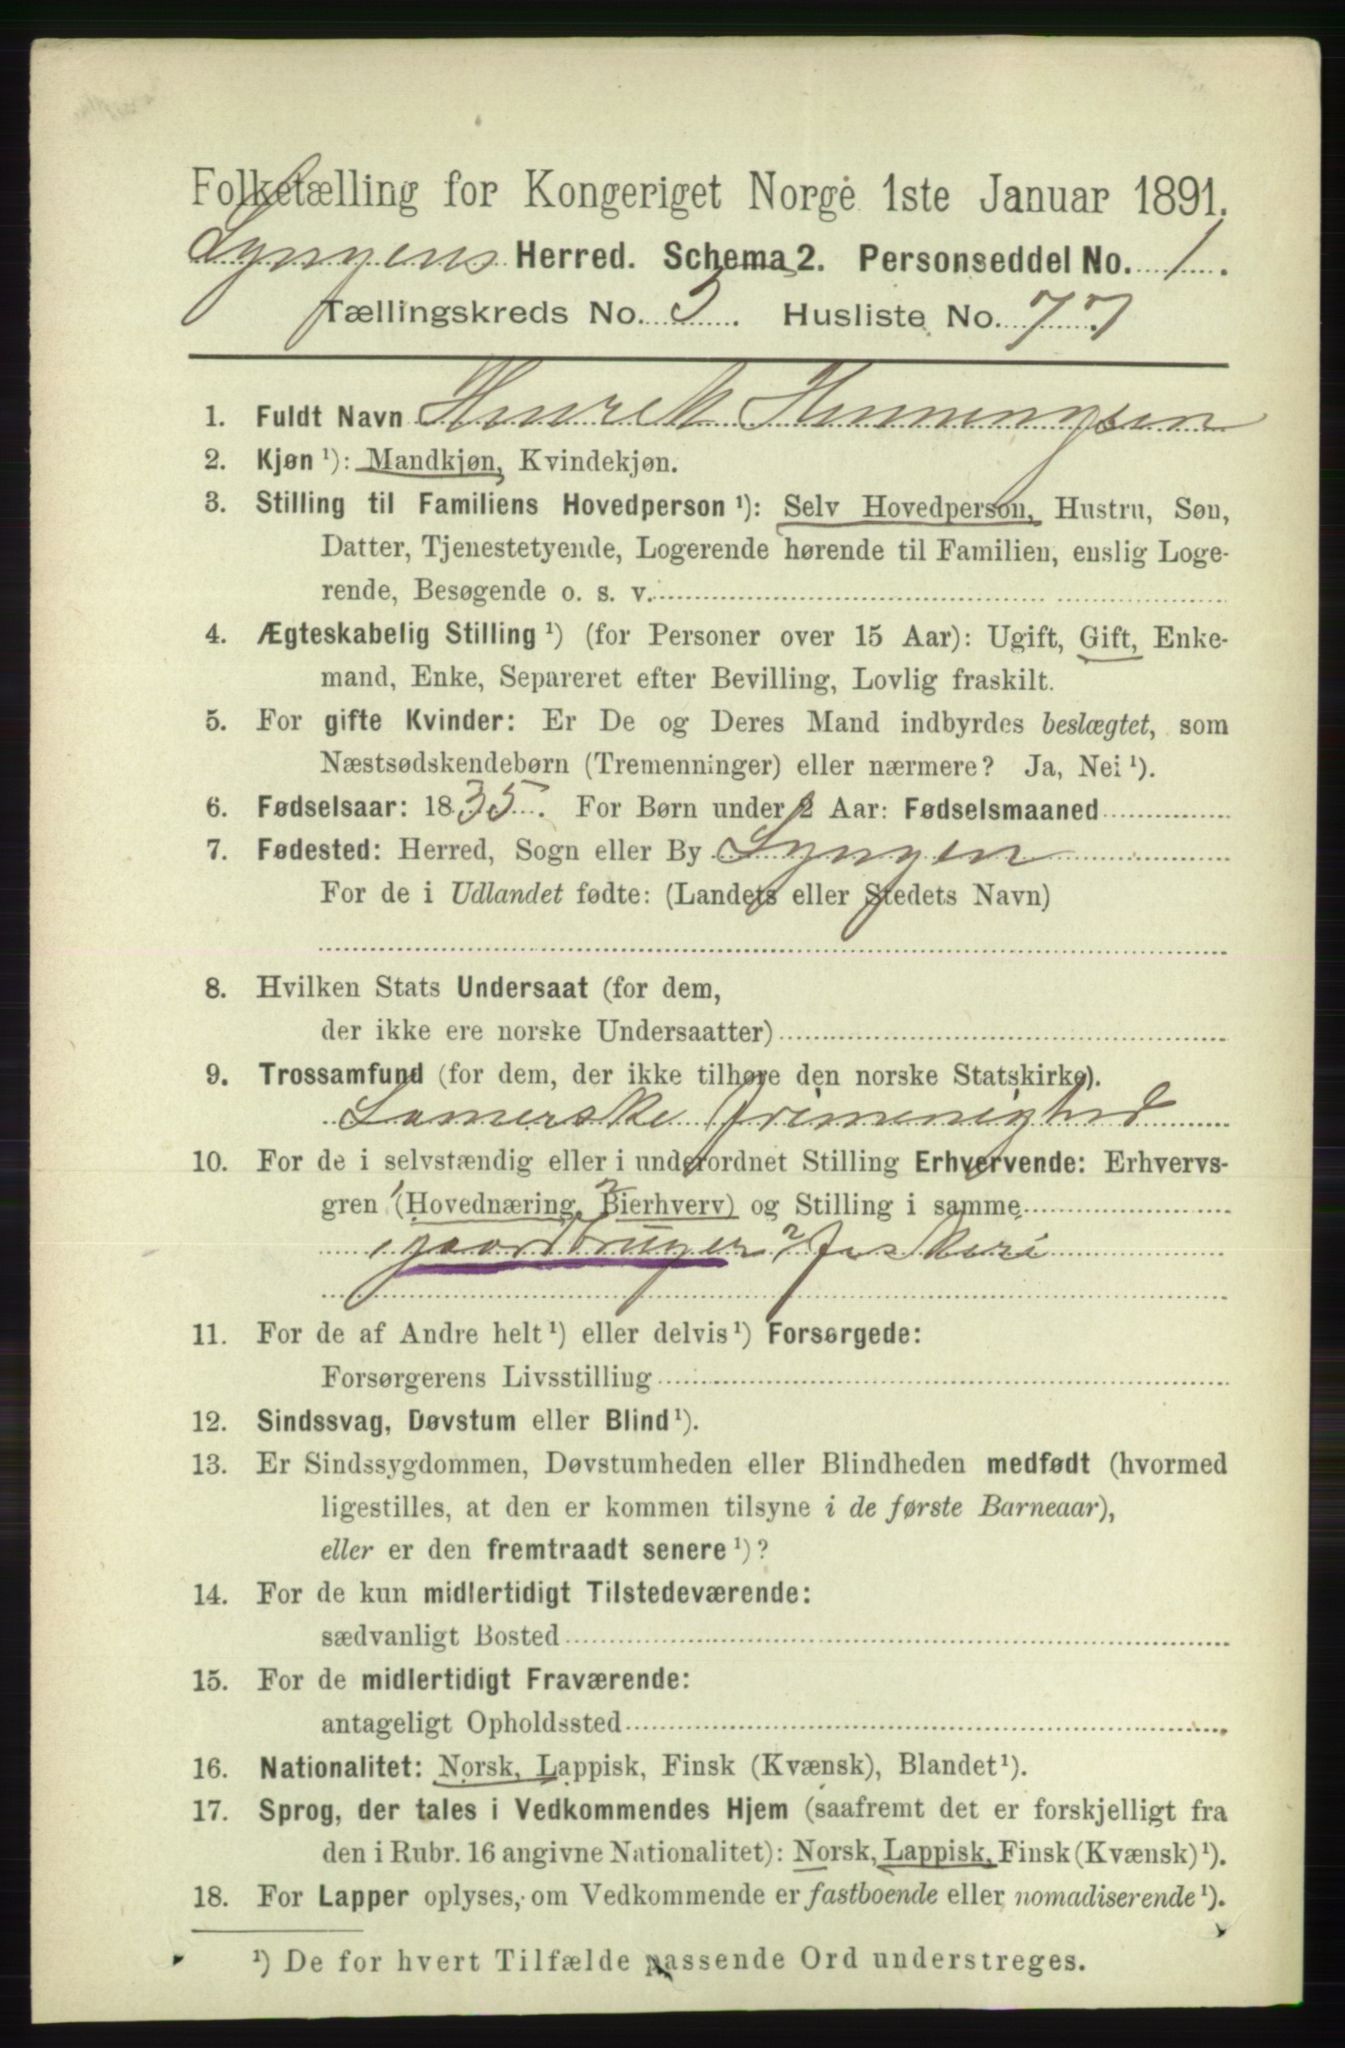 Folketælling for Kongeriget Norge 1ste Januar 1891.
Lyngens Herred. Schema 2. Personseddel No. 1.
Tællingskreds No. 3. Husliste No. 77
1. Fuldt Navn Henrik Henningsen
2. Kjøn ¹): Mandkjøn, Kvindekjøn.
3. Stilling til Familiens Hovedperson ¹): Selv Hovedperson, Hustru, Søn,
Datter, Tjenestetyende, Logerende hørende til Familien, enslig Loge-
rende, Besøgende o. s. v.
4. Ægteskabelig Stilling ¹) (for Personer over 15 Aar): Ugift, Gift, Enke-
mand, Enke, Separeret efter Bevilling, Lovlig fraskilt.
5. For gifte Kvinder: Er De og Deres Mand indbyrdes beslægtet, som
Næstsødskendebørn (Tremenninger) eller nærmere? Ja, Nei ¹).
6. Fødselsaar: 1835. For Børn under 2 Aar: Fødselsmaaned
7. Fødested: Herred, Sogn eller By Lyngen
For de i Udlandet fødte: (Landets eller Stedets Navn)
8. Hvilken Stats Undersaat (for dem,
der ikke ere norske Undersaatter)
9. Trossamfund (for dem, der ikke tilhøre den norske Statskirke).
Lamerske Frimenighed
10. For de i selvstændig eller i underordnet Stilling Erhvervende: Erhvervs-
gren ¹(Hovednæring, ²Bierhverv) og Stilling i samme
¹ gaardbruger ² fiskeri
11. For de af Andre helt ¹) eller delvis ¹) Forsørgede:
Forsørgerens Livsstilling
12. Sindssvag, Døvstum eller Blind ¹).
13. Er Sindssygdommen, Døvstumheden eller Blindheden medfødt (hvormed
ligestilles, at den er kommen tilsyne i de første Barneaar),
eller er den fremtraadt senere ¹)?
14. For de kun midlertidigt Tilstedeværende:
sædvanligt Bosted
15. For de midlertidigt Fraværende:
antageligt Opholdssted
16. Nationalitet: Norsk, Lappisk, Finsk (Kvænsk), Blandet ¹).
17. Sprog, der tales i Vedkommendes Hjem (saafremt det er forskjelligt fra
den i Rubr. 16 angivne Nationalitet): Norsk, Lappisk, Finsk (Kvænsk) ¹).
18. For Lapper oplyses, om Vedkommende er fastboende eller nomadiserende ¹).
¹) De for hvert Tilfælde passende Ord understreges.